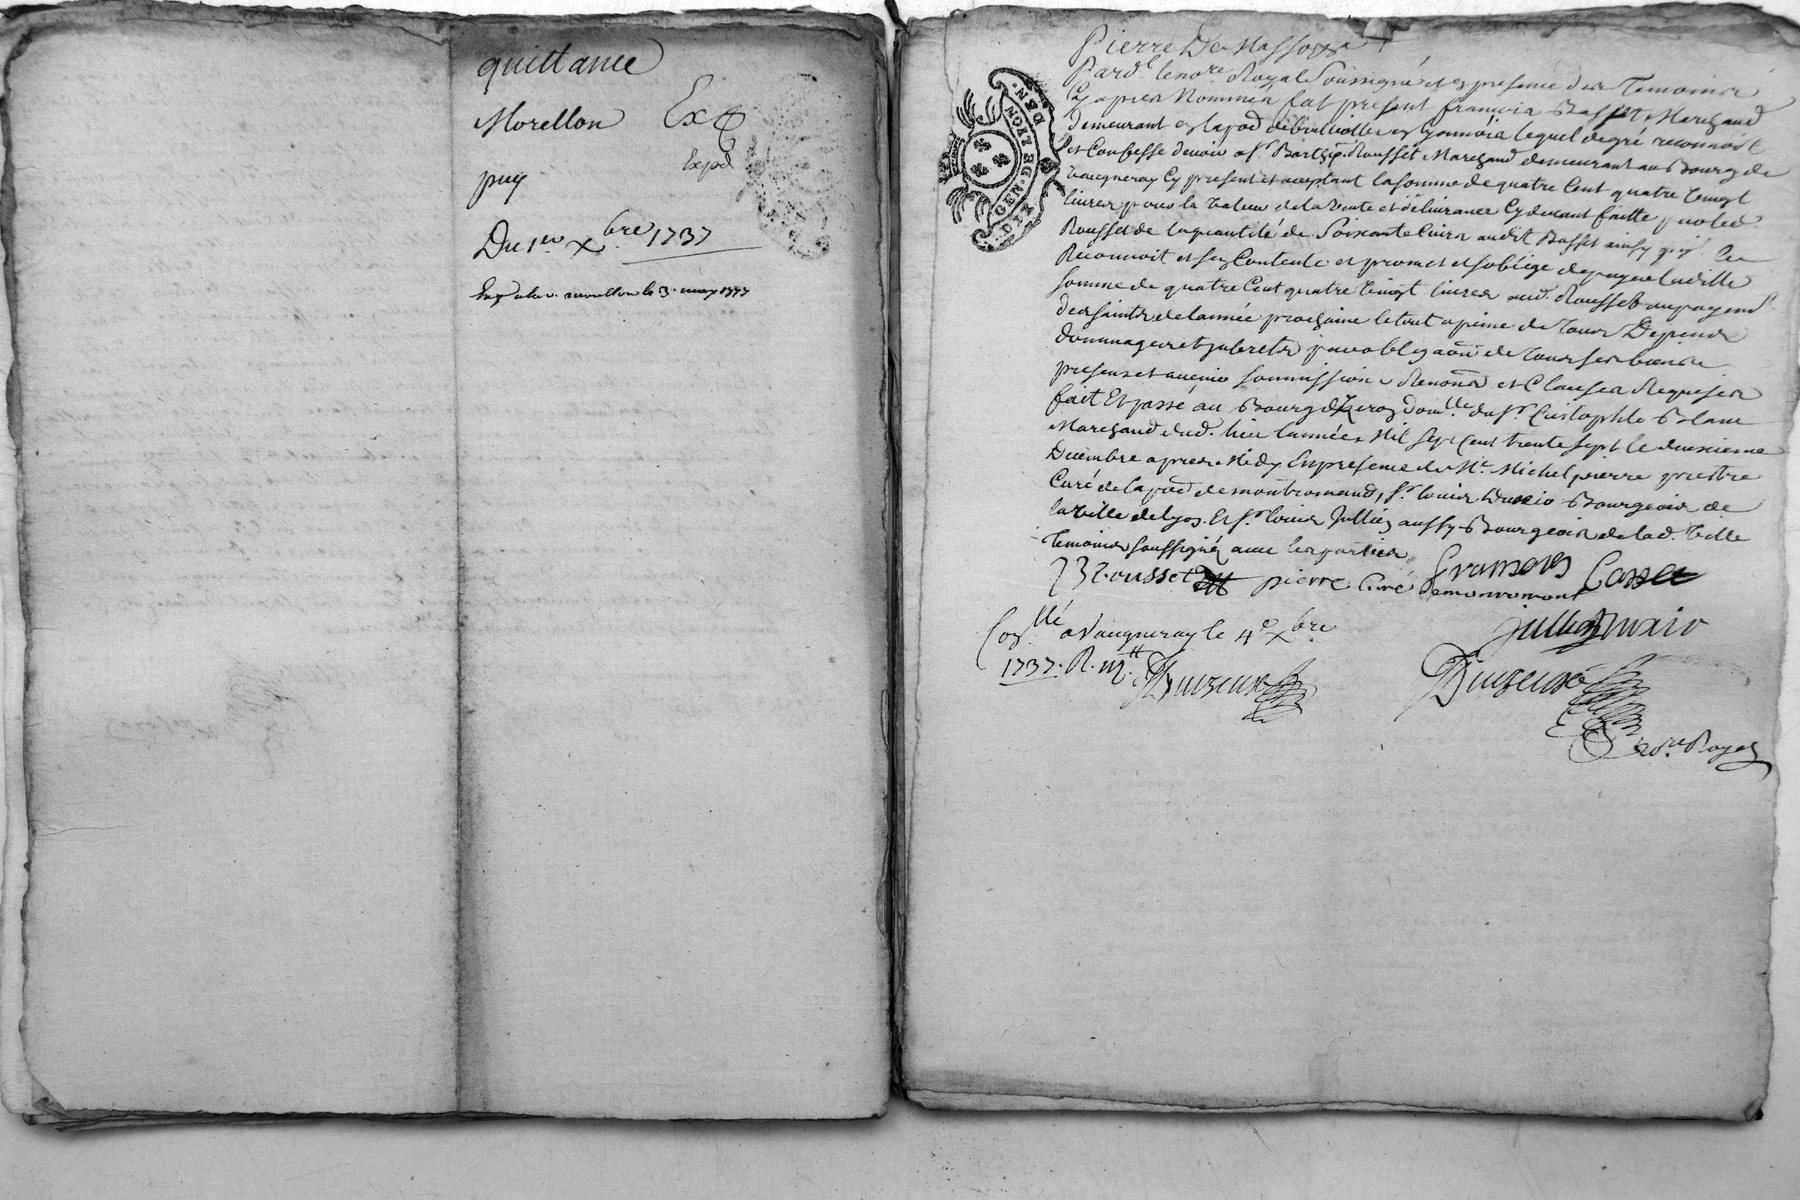 quittance
Morellon Exp
Expd
puy
Du 1er Xbre 1737
Exp a la morellon le 3 may 1777
Pierre
DIX DEN. GEN. DE LYON
Pard.t le no.re Royal Soussigné et en presence des Temoins
Cy apres Nommés fut present francois Basset Marchand
demeurant en la pod de en lyonnois lequel de gré reconnoit
et Confesse devoir a S.r Barth. Rousset Marchand demeurant au Bourg de
Vaugneray Cy present et acceptant la somme de quatre Cent quatre vingt
livres pour la valeur de la vente et délivrance Cy devant faitte par led.
Rousset de la quantité de Soixante audit Basset ainsy qu'il le
Reconnoit et sen Contente et promet et soblige de payer laditte
somme de quatre Cent quatre vingt livres aud. Rousset au payem.t
des saints de lannée prochaine le tout a peine de tous Depens
dommages et interets par obligaon de tous ses biens
presens et avenir soumission Renons et Clauses Requises
fait Et passé au Bourg d domlle du S.r Cristophle Blanc
Marchand dud. lieu lannée Mil Sept Cent trente sept le deuxieme
Decembre apres Midy En presence de M.e Michel pierre prestre
Curé de la pod de montromand, S.r louis Bourgeois de
la ville de lyon Et S.r louis Jullien aussy Bourgeois de lad. ville
temoins soussignés avec les parties
B Rousset pierre Curé de monromant francois Basset
Jullien
Con.llé a Vaugneray le 4e Xbre
1737. R.
no.re Royal